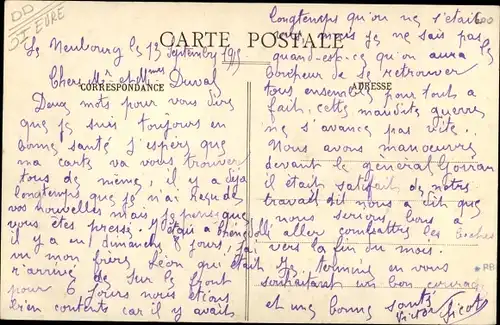 DD
27 EURE
600
CARTE POSTALE
CORRESPONDANCE
ADRESSE
Le Neubourg le 13 Septembre 1915
Chers Mr et Mmes Duval
Deux mots pour vous dire
que je suis toujours en
bonne santé j'espers que
ma carte va vous trouver
tous de même, il y a déja
longtemps que je n'ai reçu de
vos nouvelles mais je pense que
vous êtes pressé. J'étais a
il y a eu dimanche 8 jours, j'ai
vu mon frère Léon qui était
r'arrivé de sur le front
pour 6 jours nous étions
bien contents car il y avait
longtemps qu'on ne s'était
vus mais je ne sais pas
quand-est-ce qu'on aura
le bonheur de se retrouver
tous ensembles pour tout a
fait, cette maudite guerre
ne s'avance pas vite.
Nous avons manoeuvré
devant le général Goiran
il était satisfait de notre
travail il nous a dit que
nous serions bons a
aller combattre les boches
vers la fin du mois.
Je termine en vous
souhaitant un bon courage
et une bonne santé
Victor Picot
*RB